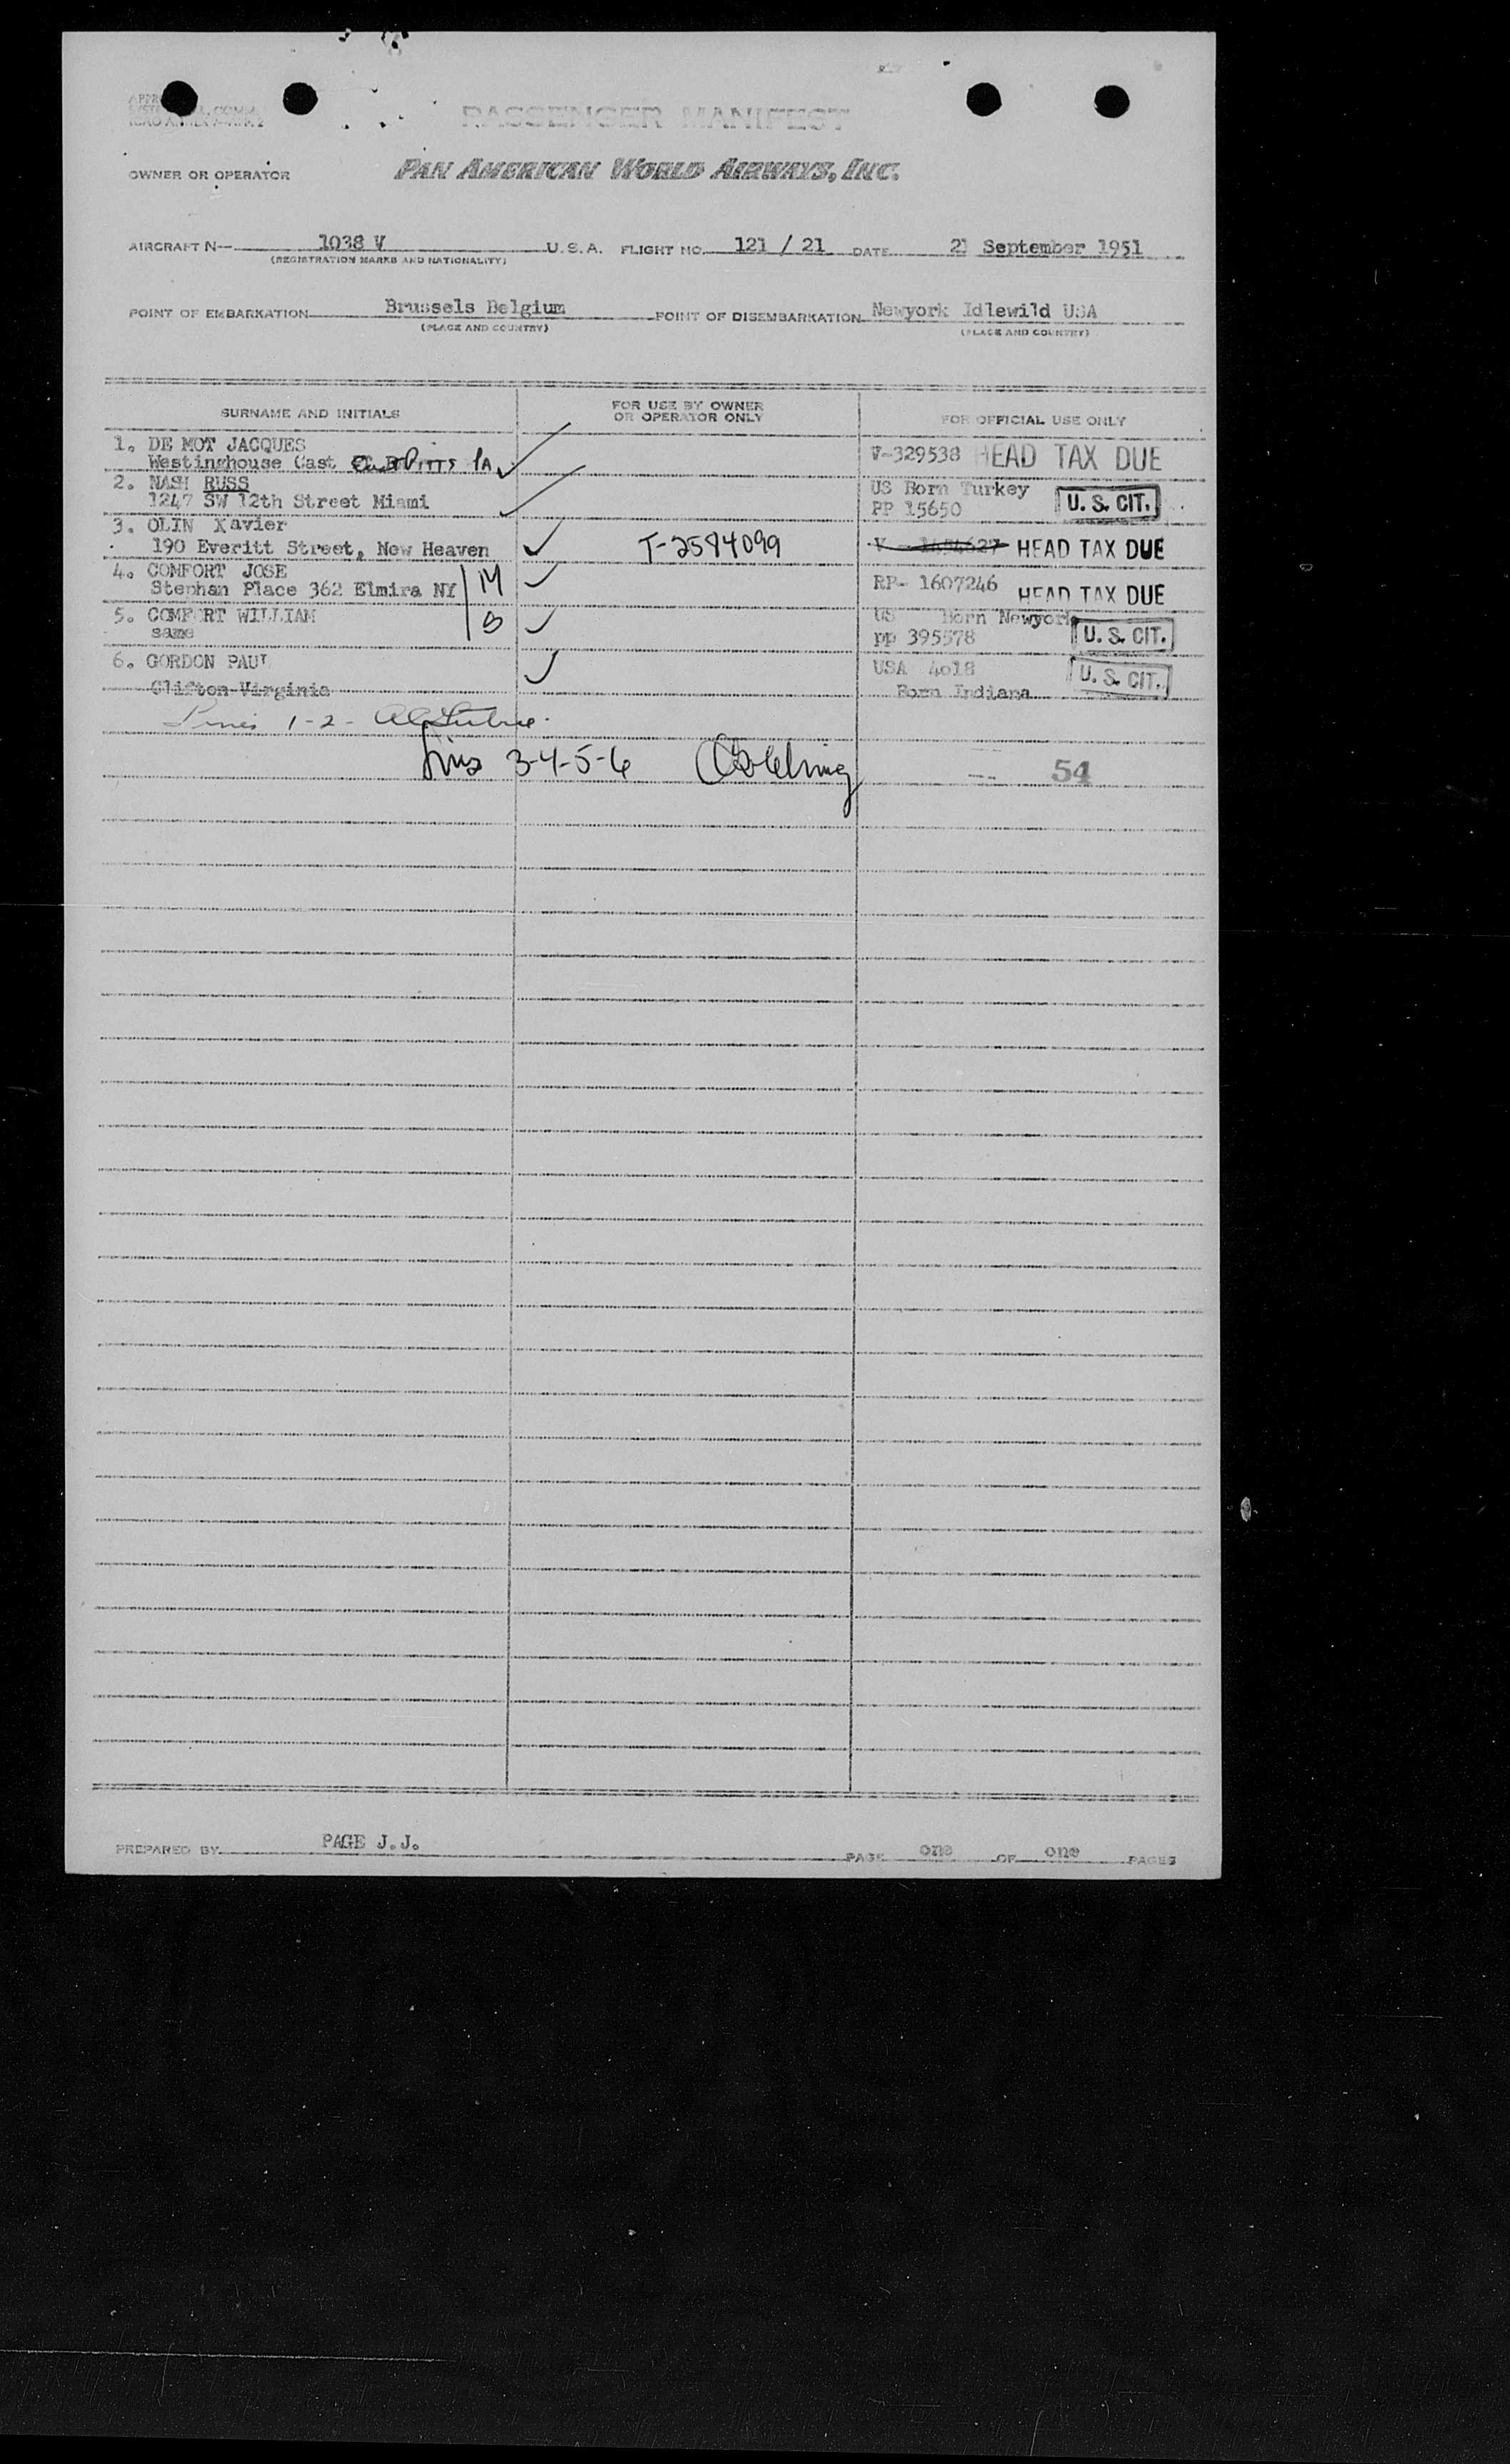 PASSENGER MANIFEST
OWNER OR OPERATOR PAN AMERICAN WORLD AIRWAYS, INC.
AIRCRAFT N— 1038 V U.S.A. FLIGHT NO. 121 / 21 DATE 21 September 1951
(REGISTRATION MARKS AND NATIONALITY)
POINT OF EMBARKATION Brussels Belgium POINT OF DISEMBARKATION Newyork Idlewild USA
(PLACE AND COUNTRY) (PLACE AND COUNTRY)
SURNAME AND INITIALS FOR USE BY OWNER OR OPERATOR ONLY FOR OFFICIAL USE ONLY
1. DE MOT JACQUES
Westinghouse East PITTS PA V-329538 HEAD TAX DUE
2. NASH RUSS US Born Turkey
1247 SW 12th Street Miami PP 15650 U. S. CIT.
3. OLIN Xavier
190 Everitt Street, New Heaven T-2594099 HEAD TAX DUE
4. COMFORT JOSE
Stephan Place 362 Elmira NY M RP- 1607246 HEAD TAX DUE
5. COMFORT WILLIAM US Born Newyork
same B pp 395578 U. S. CIT.
6. GORDON PAUL USA 4018 U. S. CIT.
Clifton Virginia Born Indiana
Lines 1-2-
Lines 3-4-5-6
54
PREPARED BY PAGE J.J. PAGE one OF one PAGES